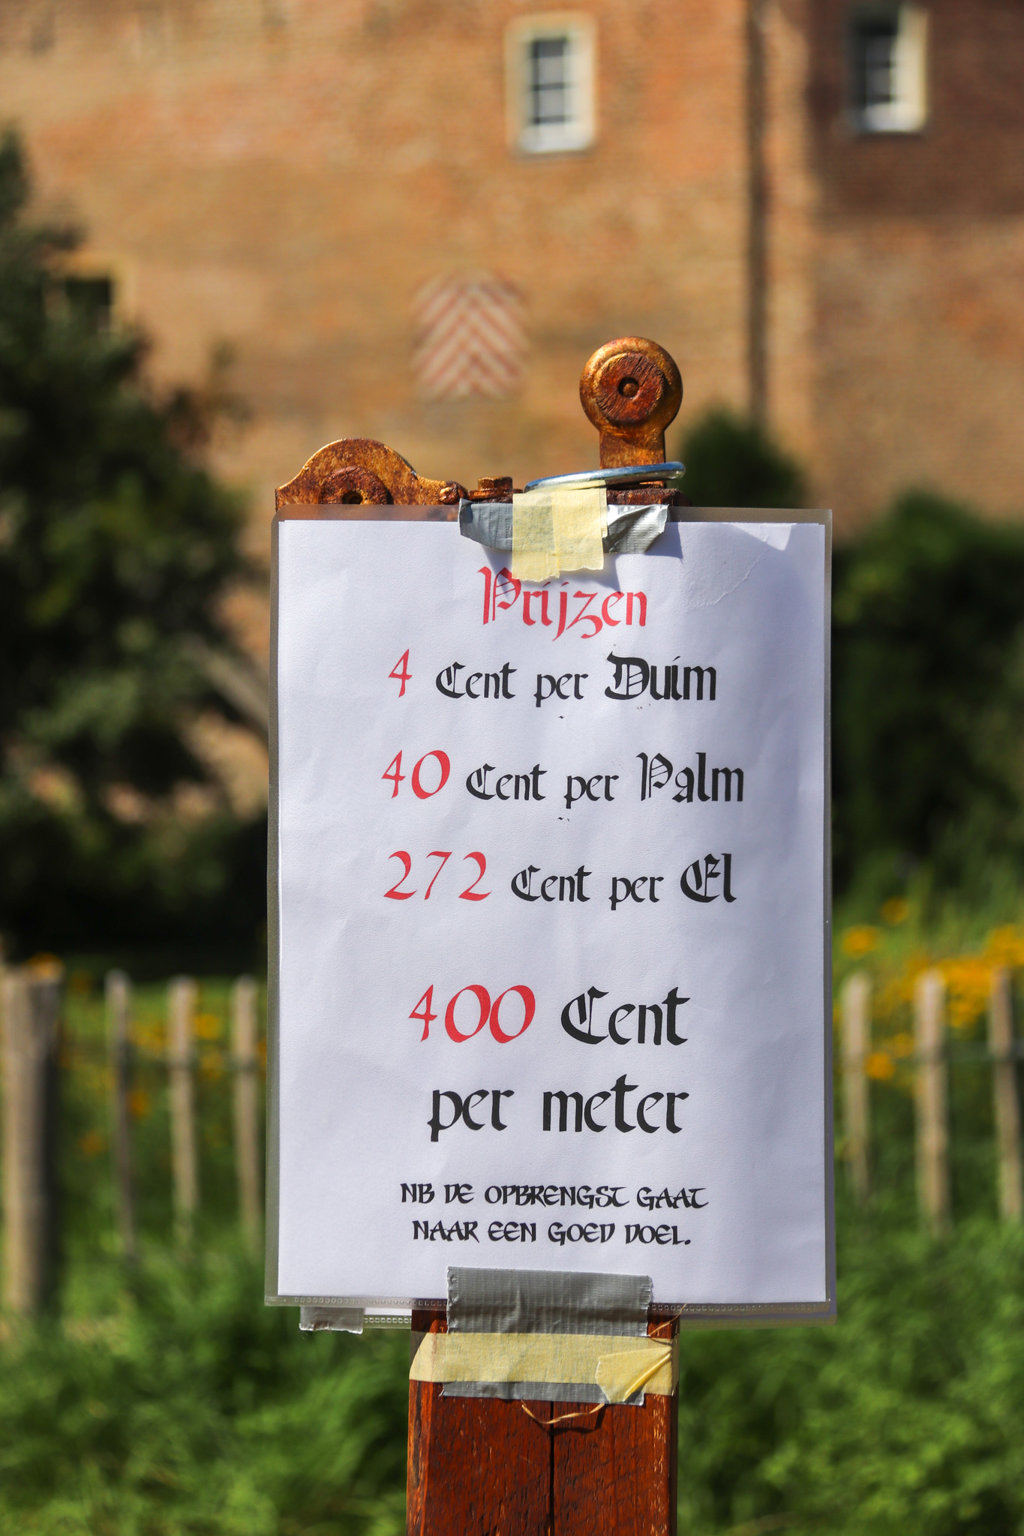 Prijzen
4 Cent per Duim
40 Cent per Palm
272 Cent per El
400 Cent
per meter
NB DE OPBRENGST GAAT
NAAR EEN GOED DOEL.